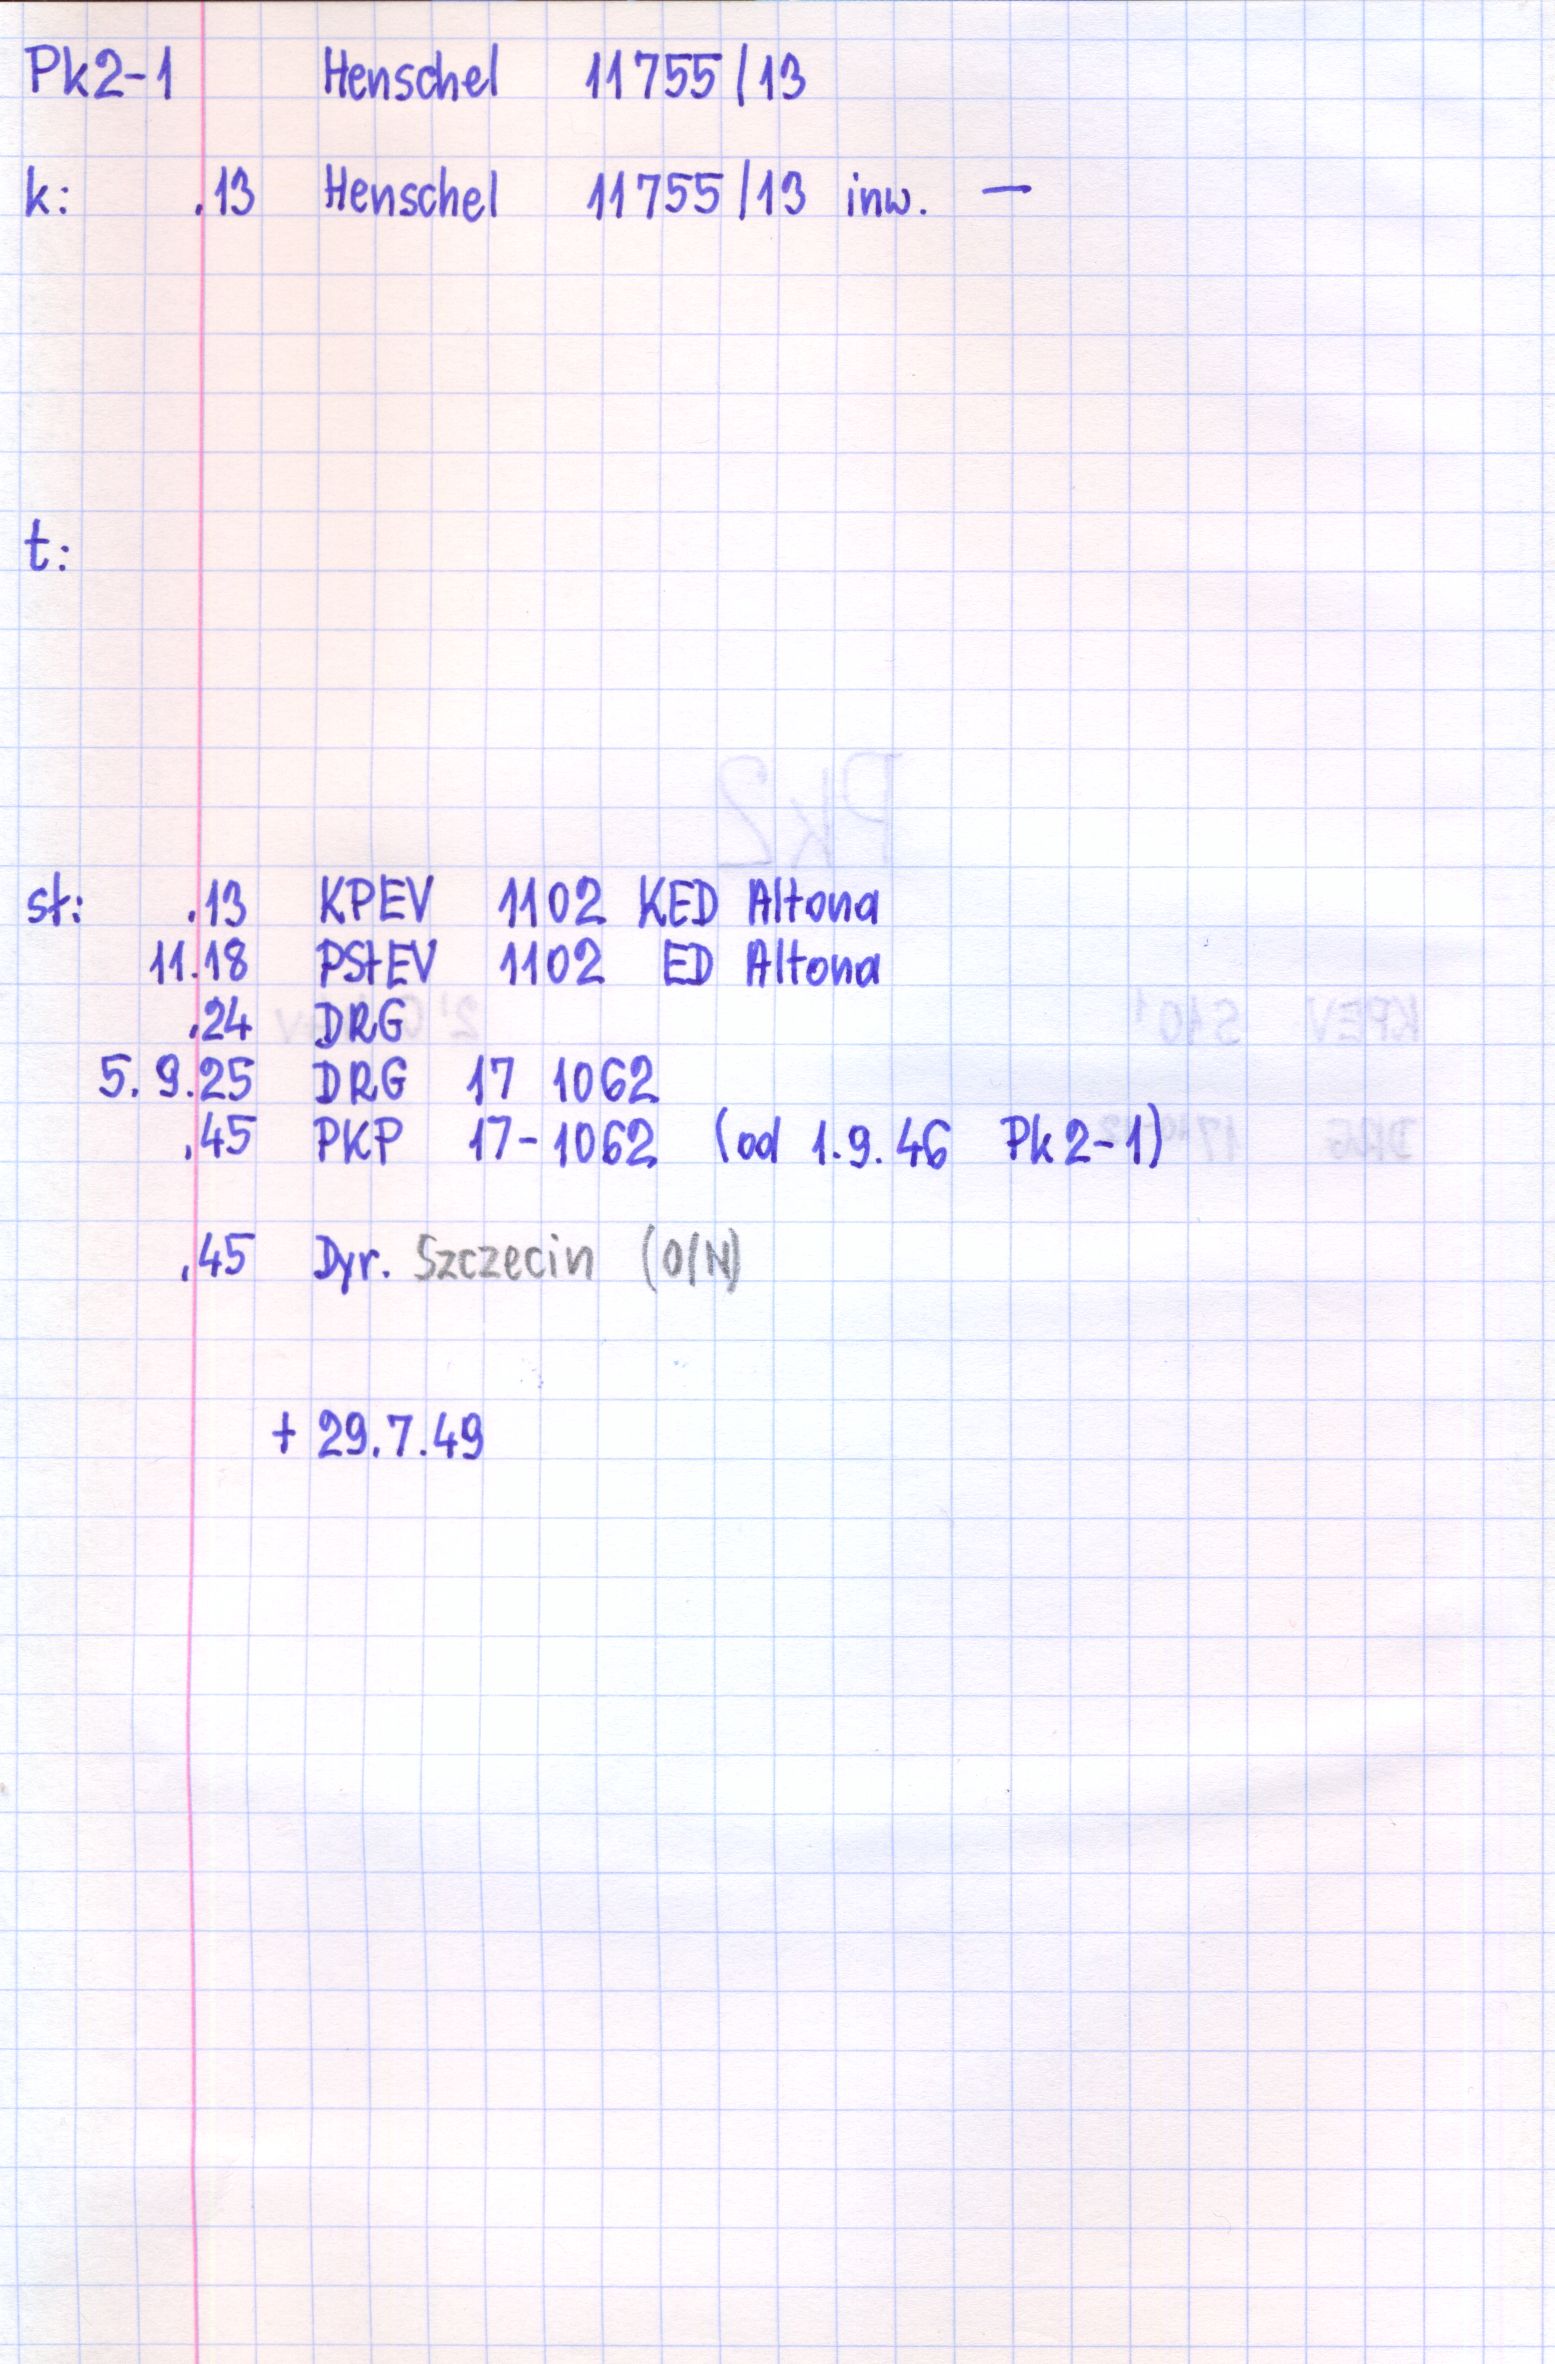 Pk2-1 Henschel 11755/13
k: .13 Henschel 11755/13 inw. —
t:
st: .13 KPEV 1102 KED Altona
11.18 PStEV 1102 ED Altona
.24 DRG
5.9.25 DRG 17 1062
.45 PKP 17-1062 (od 1.9.46 Pk2-1)
.45 Dyr. Szczecin (O/N)
+ 29.7.49